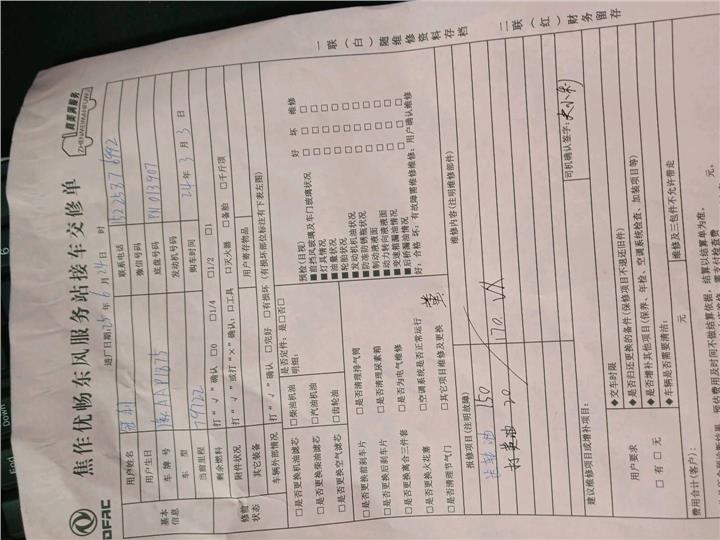 DFAC
焦作优畅东风服务站接车交修单
真美满服务
ZHENMEIMANFUWU
进厂日期:24年6月24日 时
一联(白)随维修资料存档
二联(红)财务留存
基本信息
用户姓名
联系电话
用户生日
微信号码
车牌号
底盘号码
车型
发动机号码
当前里程 79122
购车时间 24年3月3日
修前状态
剩余燃料 打“√”确认 □0 □1/4 □1/2 □1
附件状况 打“√”或打“×”确认:□工具 □灭火器 □备胎 □千斤顶
其它装备
用户寄存物品
车辆外部情况 打“√”确认 □完好 □有损坏(有损坏部位标注有下表左图)
□是否更换机油滤芯 □柴油机油
□是否更换柴油滤芯 □汽油机油
□是否更换空气滤芯 □齿轮油
是否定件:是□否□
明细:
□是否更换前刹车片 □是否清理排气筒
□是否更换后刹车片 □是否清理尿素箱
□是否更换离合三件套 □是否为电气维修
□是否更换火花塞 □空调系统是否正常运行
□是否清理节气门 □其它项目维修及更换
预检(目视) 好 坏 维修
■前挡风玻璃及车门玻璃状况 □ □ □
■灯具情况 □ □ □
■油量状况 □ □ □
■轮胎状况 □ □ □
■发动机机油状况 □ □ □
■防冻防锈瓶状况 □ □ □
■制动液液面 □ □ □
■动力转向液液面 □ □ □
■变速箱漏油情况 □ □ □
■后桥漏油情况 □ □ □
好:合格 坏:有故障需维修维修:用户确认维修
报修项目(注明故障)
维修内容(注明维修部件)
150
打黄油 20
170
建议维修项目或增补项目:
司机确认签字:
用户要求
□有□无
◆交车时限
◆是否归还更换的备件(保修项目不退还旧件)
◆是否增补其他项目(保养、年检、空调系统检查、加装项目等)
◆车辆是否需要清洁:
维修及三包件不允许带走
费用合计(客户): 元
预估费用及时间不做结算依据,结算以结算单为准,
元。